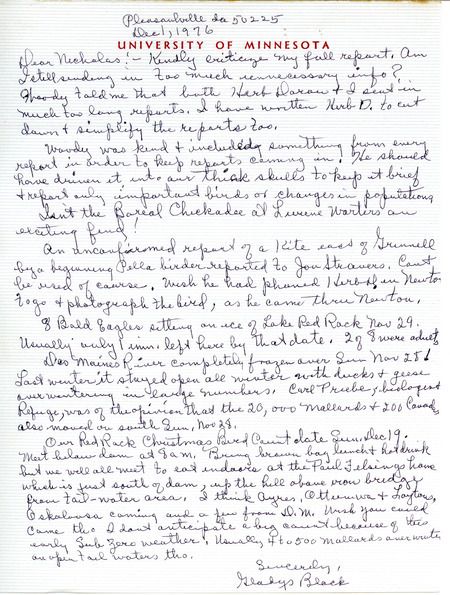 Pleasantville Ia 50225
Dec 1, 1976
UNIVERSITY OF MINNESOTA
Dear Nicholas:- Kindly criticize my fall report. Am
I still sending in too much unnecessary info?
Woody told me that both Herb Dorow & I sent in
much too long reports. I have written Herb D. to cut
down & simplify the reports too.
Woody was kind & included something from every
report in order to keep reports coming in. He should
have driven it into our thick skulls to keep it brief
& report only important birds or changes in populations
Isn't the Boreal Chickadee at Lurene Warters an
exciting find!
An unconfirmed report of a Kite east of Grinnell
by a beginning Pella birder reported to Jon Stravers. Can't
be used of course. Wish he had phoned Herb D. in Newton
to go & photograph the bird, as he came thru Newton.
8 Bald Eagles sitting on ice of Lake Red Rock Nov 29.
Usually only 1 imm. left here by that date. 2 of 8 were adults
Des Moines River completely frozen over Sun Nov 28!
Last winter it stayed open all winter with ducks & geese
overwintering in large numbers. Carl Priebe, biologist
Refuge, was of the opinion that the 20,000 Mallards & 200 Canadas
also moved on south Sun, Nov 28.
Our Red Rock Christmas Bird Count date Sun, Dec 19.
Meet below dam at 8 am, Bring brown bag lunch & hot drink
but we will all meet to eat indoors at the Paul Felsings home
which is just south of dam, up the hill above iron bridge
from tail-water area. I think Ayres, Ottumwa & Laytons,
Oskaloosa coming and a few from D.M. Wish you could
come tho I don't anticipate a big count because of this
early Sub Zero weather. Usually, 4 to 500 Mallards overwinter
on open tail waters tho.
Sincerely,
Gladys Black